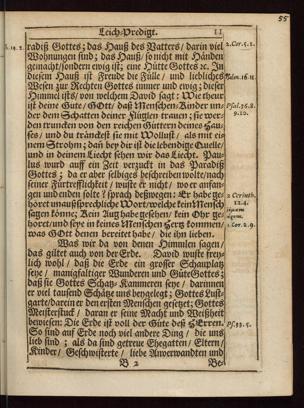 55
Leich-Predigt. 11
radiß Gottes; das Hauß des Vatters/ darin viel
Wohnungen sind; das Hauß/ so nicht mit Händen
gemacht/ sondern ewig ist; eine Hütte Gottes ꝛc. In
diesem Hauß ist Freude die Fülle/ und liebliches
Wesen zur Rechten Gottes immer und ewig; dieser
Himmel ists/ von welchem David sagt: Wie theur
ist deine Güte/ GOtt/ daß Menschen-Kinder un-
der dem Schatten deiner Flügel trauen; sie wer-
den truncken von den reichen Gütern deines Hau-
ses/ und du tränckest sie mit Wollust/ als mit ei-
nem Strohm; dan bey dir ist die lebendige Quelle/
und in deinem Liecht sehen wir das Liecht. Pau-
lus wurd auff ein Zeit verzuckt in das Paradiß
Gottes; da er aber selbiges beschreiben wolte/ nach
seiner Fürtrefflichkeit/ wuste er nicht/ wo er anfan-
gen und enden solte? sprach deßwegen: Er habe ge-
höret unaußsprechliche Wort/ welche kein Mensch
sagen könne; Kein Aug habe gesehen/ kein Ohr ge-
höret/ und seye in keines Menschen Hertz kommen/
was GOtt denen bereitet habe/ die ihn lieben.
Was wir da von denen Himmlen sagen/
das giltet auch von der Erde. David wuste frey-
lich wohl/ daß die Erde ein grosser Schauplatz
seye/ manigfaltiger Wunderen und Güte Gottes;
daß sie Gottes Schatz-Kammeren seye/ darinnen
er viel tausend Schätze uns beygelegt; Gottes Lust-
garte/ darein er den ersten Menschen gesetzet; Gottes
Meisterstuck/ daran er seine Macht und Weißheit
bewiesen: Die Erde ist voll der Güte deß HErren.
So sind auf Erde noch viel andere Ding/ die uns
lieb sind; als da sind getreue Ehegatten/ Eltern/
Kinder/ Geschwisterte/ liebe Anverwandten und
B 2 Be-
2. Cor. 5. 1.
Psalm. 16. 11.
Psal. 36. 8.
9. 10.
2 Corinth.
12. 4.
1. Cor. 2. 9.
Ps. 33. 5.